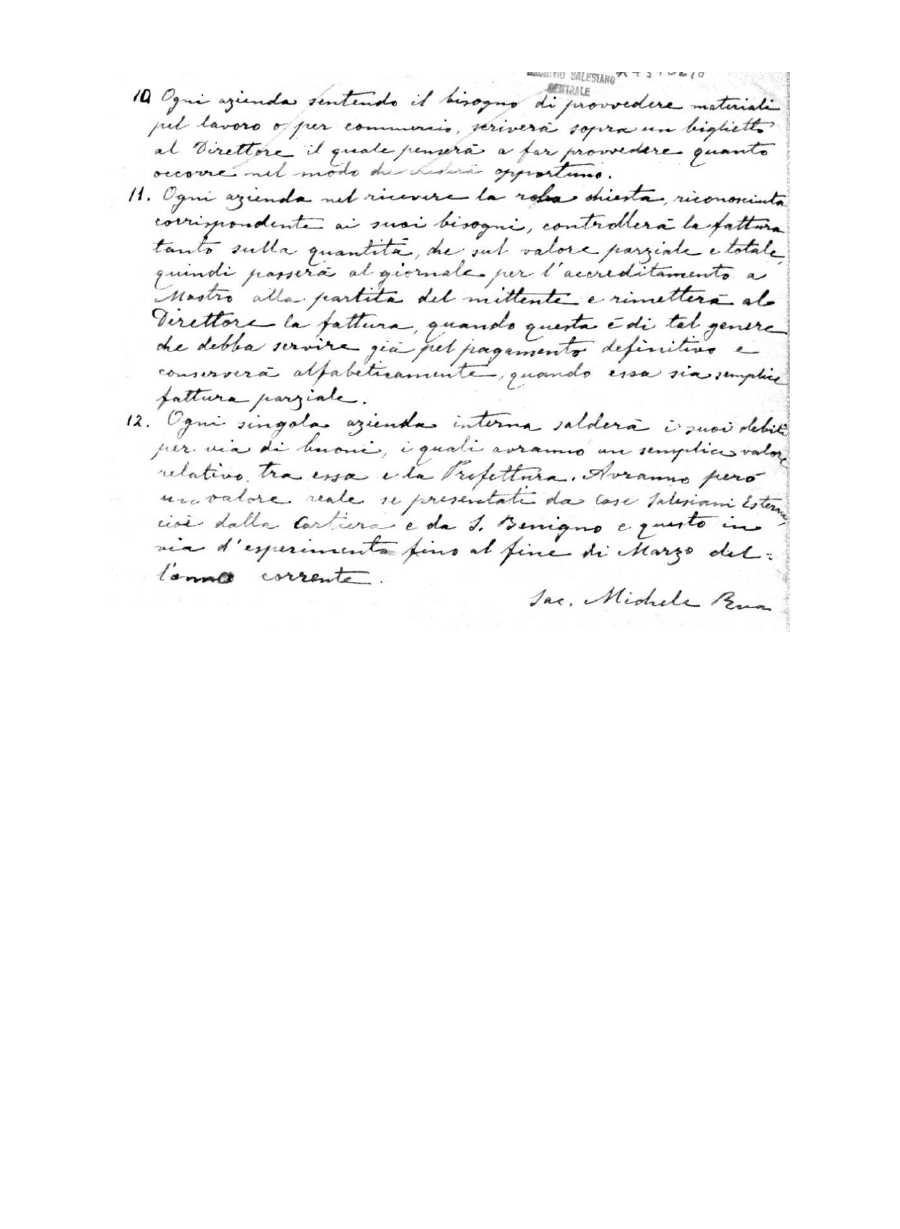 ARCHIVIO SALESIANO
CENTRALE
10 Ogni azienda sentendo il bisogno di provvedere materiali
pel lavoro o per commercio, scriverà sopra un biglietto
al Direttore il quale penserà a far provvedere quanto
occorre nel modo che crederà opportuno.
11. Ogni azienda nel ricevere la roba chiesta, riconosciuta
corrispondente ai suoi bisogni, controllerà la fattura
tanto sulla quantità, che sul valore parziale e totale,
quindi passerà al giornale per l'accreditamento a
Mastro alla partita del mittente e rimetterà al
Direttore la fattura, quando questa è di tal genere
che debba servire già pel pagamento definitivo e
conserverà alfabeticamente, quando essa sia semplice
fattura parziale.
12. Ogni singola azienda interna salderà i suoi debiti
per via di buoni, i quali avranno un semplice valore
relativo tra essa e la Prefettura. Avranno però
un valore reale se presentati da Case Salesiani Esterne,
cioè dalla Cartiera e da S. Benigno e questo in
via d'esperimento fino al fine di Marzo del=
l'anno corrente.
Sac. Michele Rua